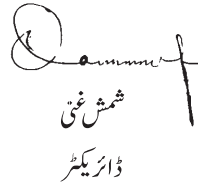 شمش غنی
ڈائریکٹر